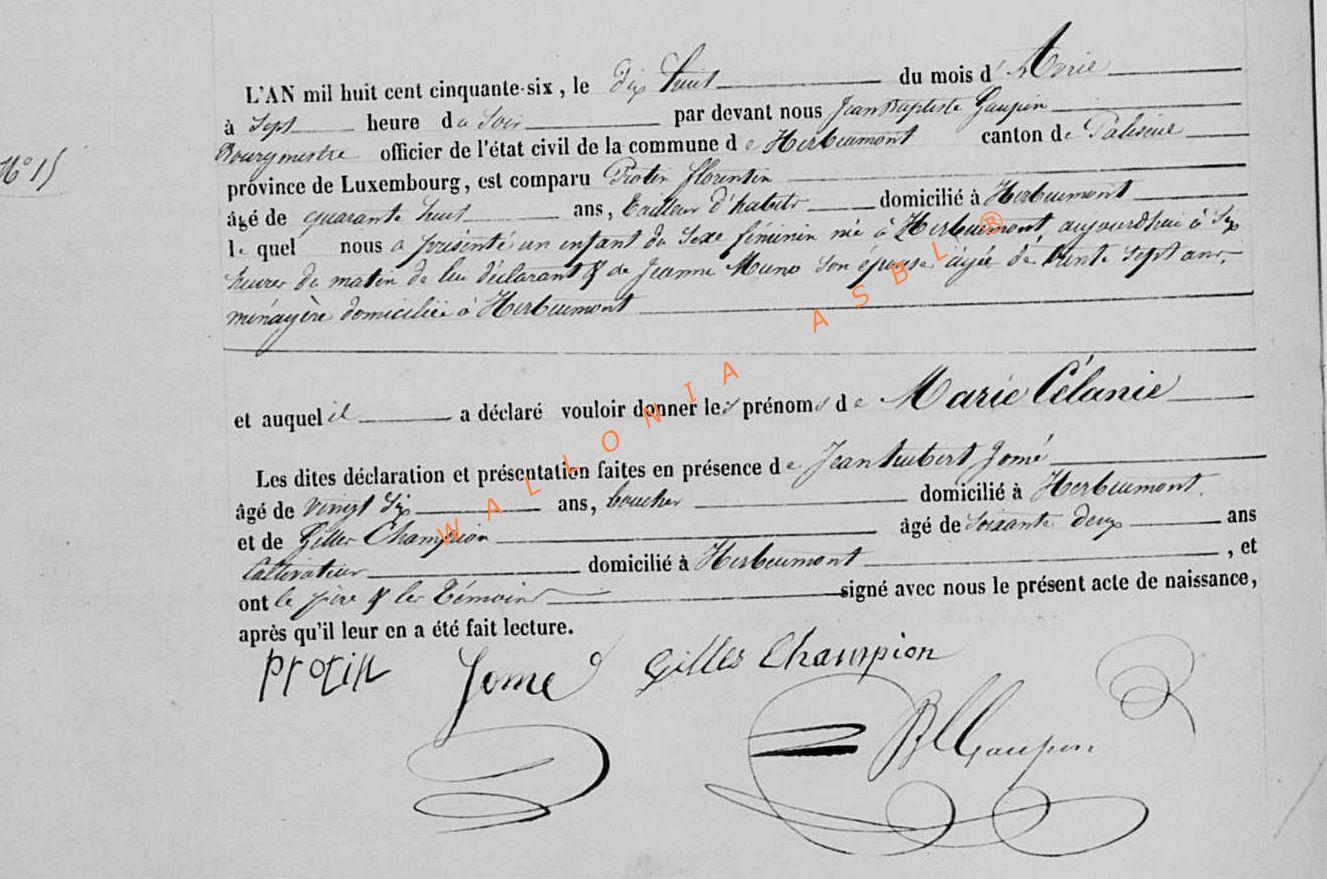 L'AN mil huit cent cinquante-six, le dix huit du mois d'Avril
à Sept heure du Soir par devant nous Jean Baptiste Gaupin
Bourgmestre officier de l'état civil de la commune de Herbeumont canton de Paliseul
N° 15
province de Luxembourg, est comparu Protin florentin
âgé de quarante huit ans, tailleur d'habits domicilié à Herbeumont
lequel nous a présenté un enfant du Sexe féminin né à Herbeumont aujourdhui à Six
heures du matin de lui déclarant & de Jeanne Muno Son épouse âgée de trente Sept ans,
ménagère domiciliée à Herbeumont
et auquel il a déclaré vouloir donner les prénoms de Marie Célanie
Les dites déclaration et présentation faites en présence de Jean hubert Jomé
âgé de vingt Six ans, boucher domicilié à Herbeumont.
et de Gilles Champion âgé de Soixante deux ans
Cultivateur domicilié à Herbeumont, et
ont le père & les Témoins signé avec nous le présent acte de naissance,
après qu'il leur en a été fait lecture.
Protin Jomé Gilles Champion
JB Gaupin
WALLONIA ASBL ®